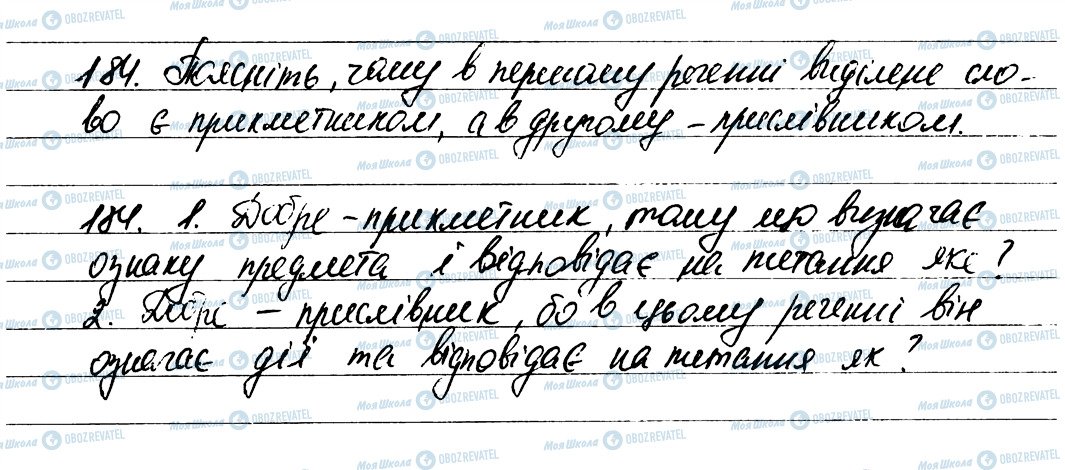 184. Поясніть, чому в першому реченні виділене сло-
во є прикметником, а в другому – прислівником.
184. 1. Добре – прикметник, тому що визначає
ознаку предмета і відповідає на питання яке?
2. Добре – прислівник, бо в цьому реченні він
означає дії та відповідає на питання як?